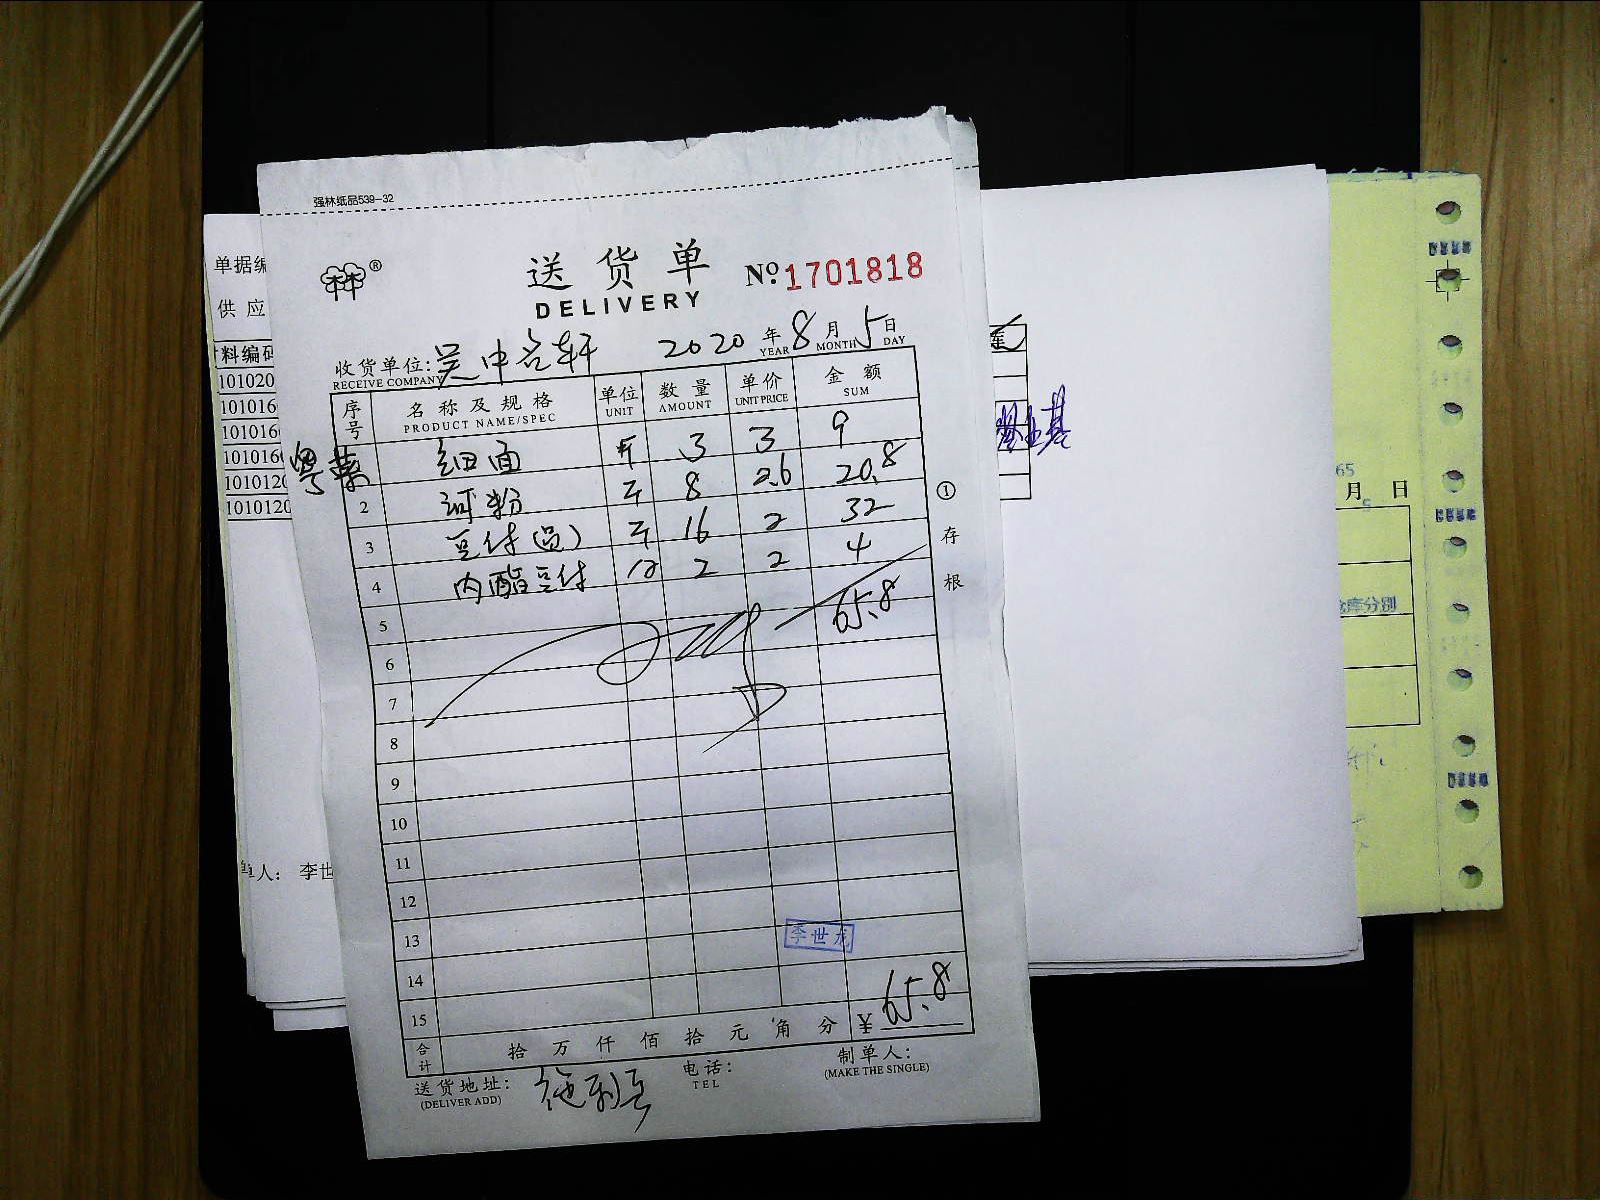 强林纸品539-32
®
送货单
DELIVERY
№ 1701818
收货单位: 吴中名轩 2020 年 8 月 5 日
RECEIVE COMPANY YEAR MONTH DAY
序号 名称及规格 单位 数量 单价 金额
PRODUCT NAME/SPEC UNIT AMOUNT UNIT PRICE SUM
粤菜
细面 斤 3 3 9
2 河粉 斤 8 2.6 20.8
3 豆付(圆) 斤 16 2 32
4 内酯豆付 2 2 4
5 65.8
6
7
8
9
10
11
12
13 李世龙
14
15
合计 拾 万 仟 佰 拾 元 角 分 ¥ 65.8
送货地址: 电话: 制单人:
(DELIVER ADD) TEL (MAKE THE SINGLE)
①存根
单据编
供应
料编码
101020
101016
101016
101016
101012
101012
单人: 李世
65
月 日
仓库分别